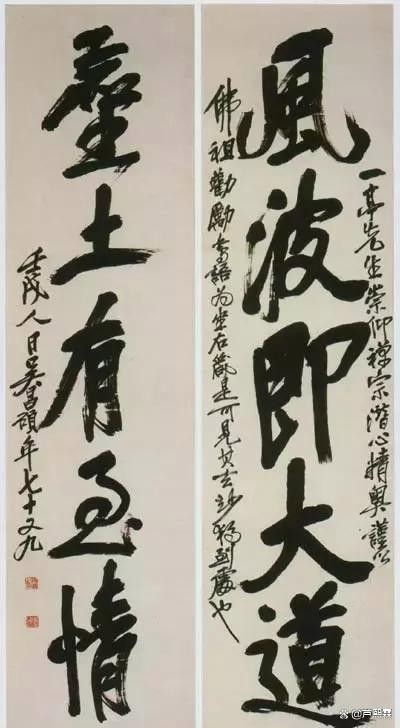 風波即大道
一亭先生崇仰禪宗潛心精奧謹以
佛祖勸勵語為坐右箴是可見其玄妙獨到處也
塵土有至情
壬戌人日吳昌碩年七十又九
@芦熙霖